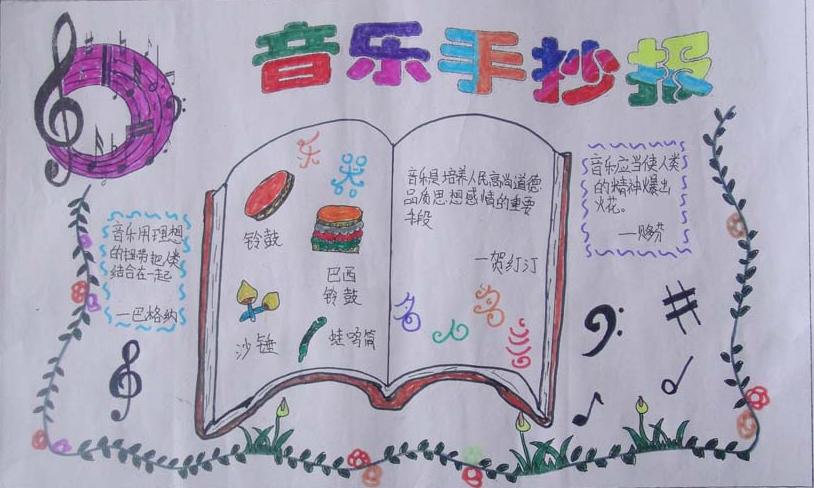 音乐手抄报
音乐用理想
的纽带把人类
结合在一起
—巴格纳
乐器
铃鼓
巴西
铃鼓
沙锤
蛙鸣筒
音乐是培养人民高尚道德
品质思想感情的重要
手段
—贺绿汀
名人名言
音乐应当使人类
的精神爆出
火花。